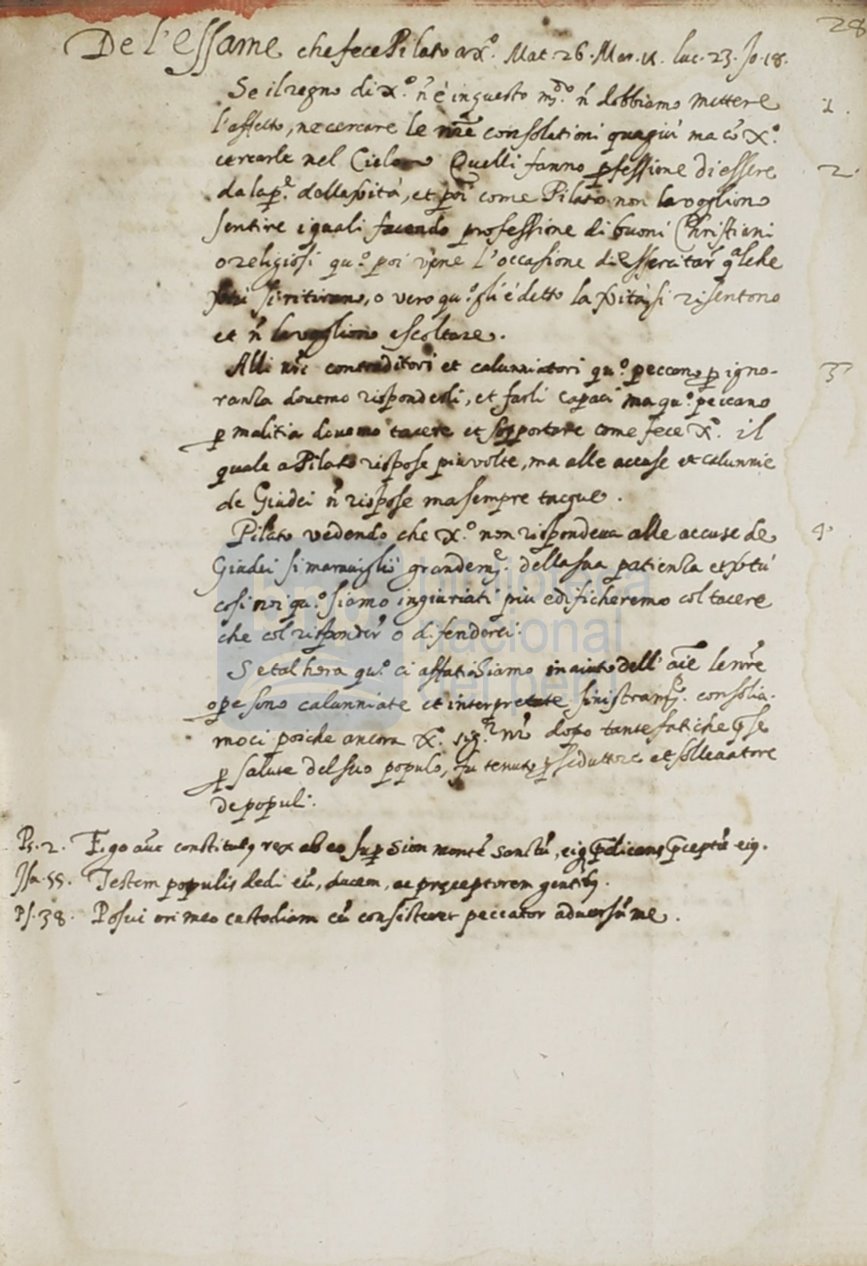 28
De l'essame che fece Pilato a xº. Mat. 26. Mar. 14. luc. 23. Jo. 18.
Se il regno di xº. ñ è in questo mdº. ñ dobbiamo mettere 1.
l'affetto, ne cercare le nrẽ consolationi quagiù ma cõ xº.
cercarle nel Cielo Quelli fanno pfessione di essere 2.
da la p.ᵉ della vità, et poi come Pilato non la vogliono
sentire i quali facendo professione di buoni Christiani
o religiosi quº. poi viene l'occasione di essercitar qlche
si ritirano, o vero quº. gli è detto la vità, si risentono
et ñ la vogliono escoltare.
Alli nri contraditori et calunniatori quº. peccano p igno- 3
ranza dovemo risponderli, et farli capaci ma quº. peccano
p malitia dovemo tacere et sopportare come fece xº. il
quale a Pilato rispose più volte, ma alle accuse et calunnie
de Giudei ñ rispose ma sempre tacque.
Pilato vedendo che xº. non rispondeva alle accuse de 4.
Giudei si maravigliò grandemᵉ. della sua patienza et vtù
così noi quº. siamo ingiuriati più edificheremo col tacere
che col risponder o difenderci.
Se tal hora quº. ci affatighiamo in aiuto dell' aĩe le nrẽ
ope sono calunniate et interpretate sinistramᵉ. consolia-
moci poiche ancora xº. sigʳ. nrõ dopo tante fatiche
p salute del suo populo, fu tenuto p seduttore et sollevatore
de populi.
Ps. 2. Ego aut constitutꝰ rex ab eo sup Sion montẽ sanctũ, eiꝰ pdicans pceptũ eiꝰ.
Isa. 55. Testem populis dedi eũ, ducem, ac preceptorem gentibꝰ.
Ps. 38. Posui ori meo custodiam cũ consisteret peccator adversũ me.
biblioteca
nacional
del perú